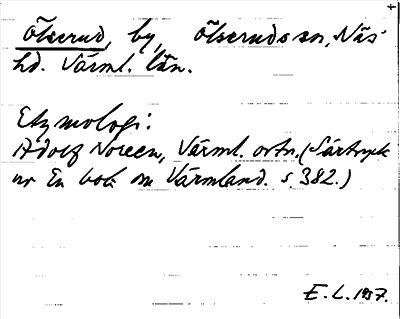 Ölserud, by, Ölseruds sn, Näs
hd. Värml. län.
Etymologi:
Adolf Noreen, Värml. ortn. (Särtryck
ur En bok om Värmland. s. 382.)
E. L. 1937.